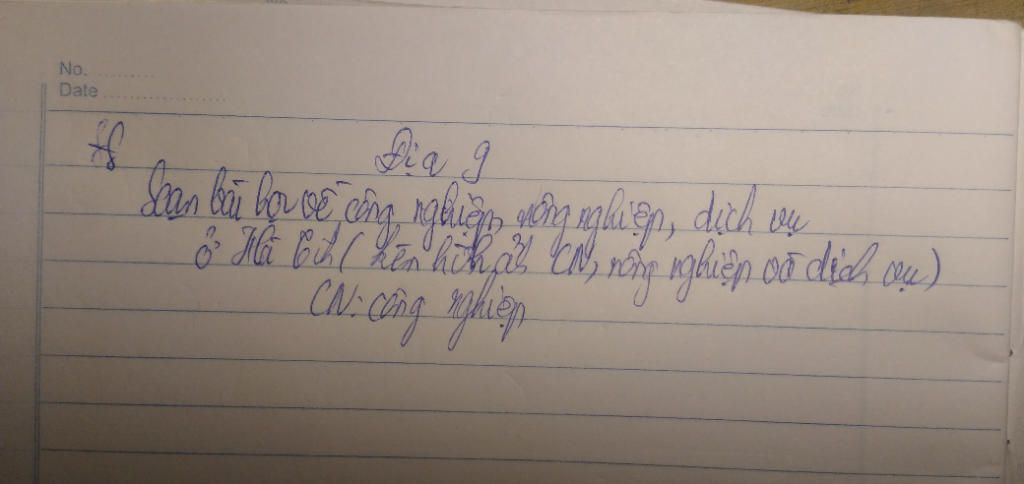 No. ..........
Date ....................
Địa 9
Soạn bài học về công nghiệp, nông nghiệp, dịch vụ
ở Hà Tĩnh ( kèm hình ảnh CN, nông nghiệp và dịch vụ )
CN: công nghiệp